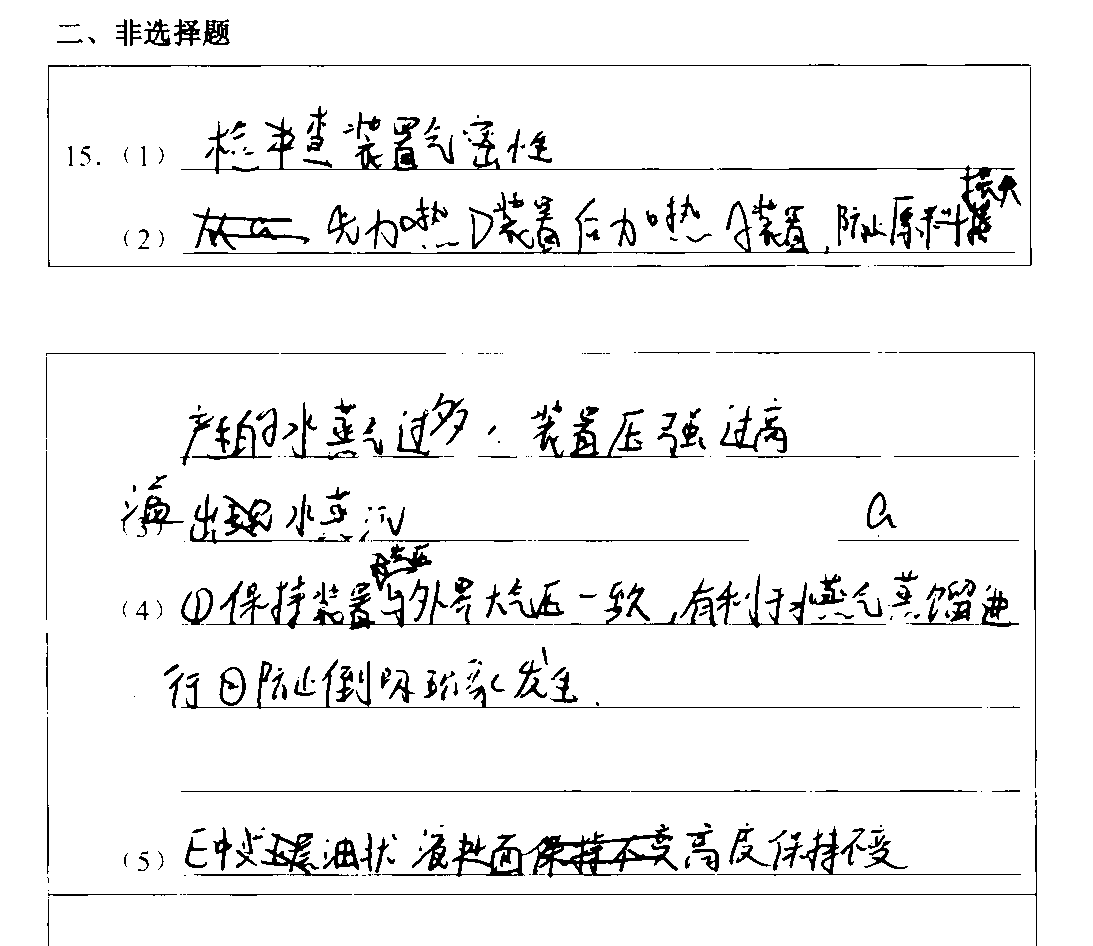 二、非选择题
15.（1） 检查装置气密性
（2） 先加热D装置后加热A装置，防止原料损失
产生的水蒸气过多，装置压强过高
溢出 水蒸汽 a
（4）①保持装置与外界大气压一致，有利于水蒸气蒸馏进
行②防止倒吸现象发生.
（5）E中 油状液 面保持不变高度保持不变